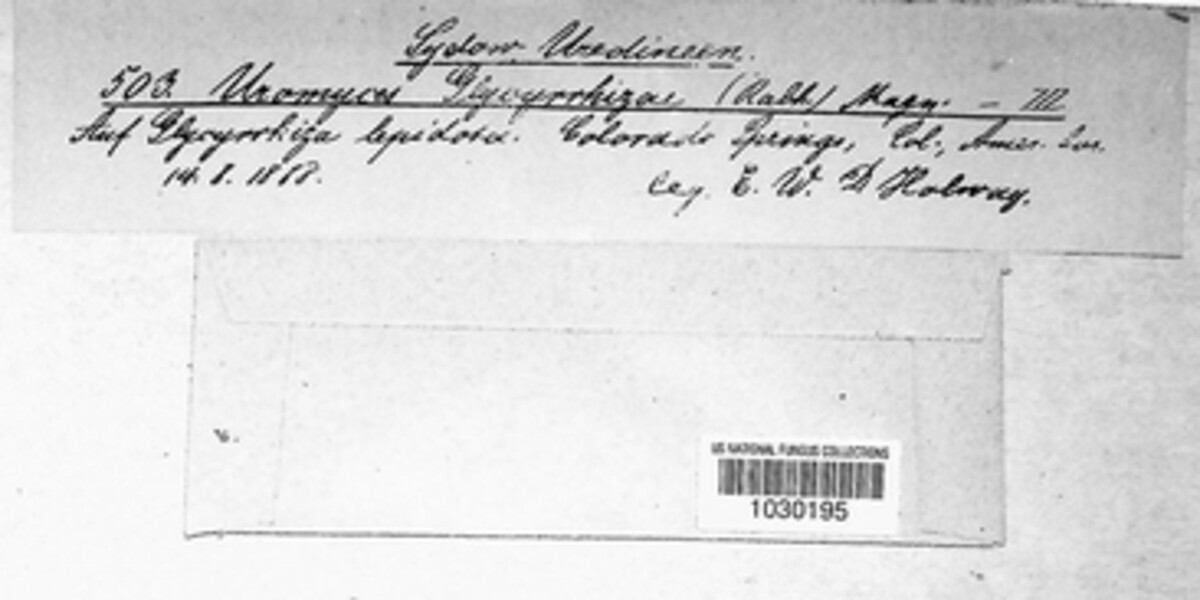 Sydow. Uredineen.
503. Uromyces Glycyrrhizae (Rabh.) Magn. – III
Auf Glycyrrhiza lepidota. Colorado Springs, Col., Amer.
14. 8. 1888.
leg. E. W. D Holway.
US NATIONAL FUNGUS COLLECTIONS
1030195